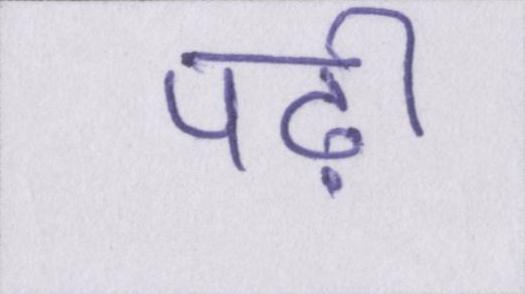 पढ़ी